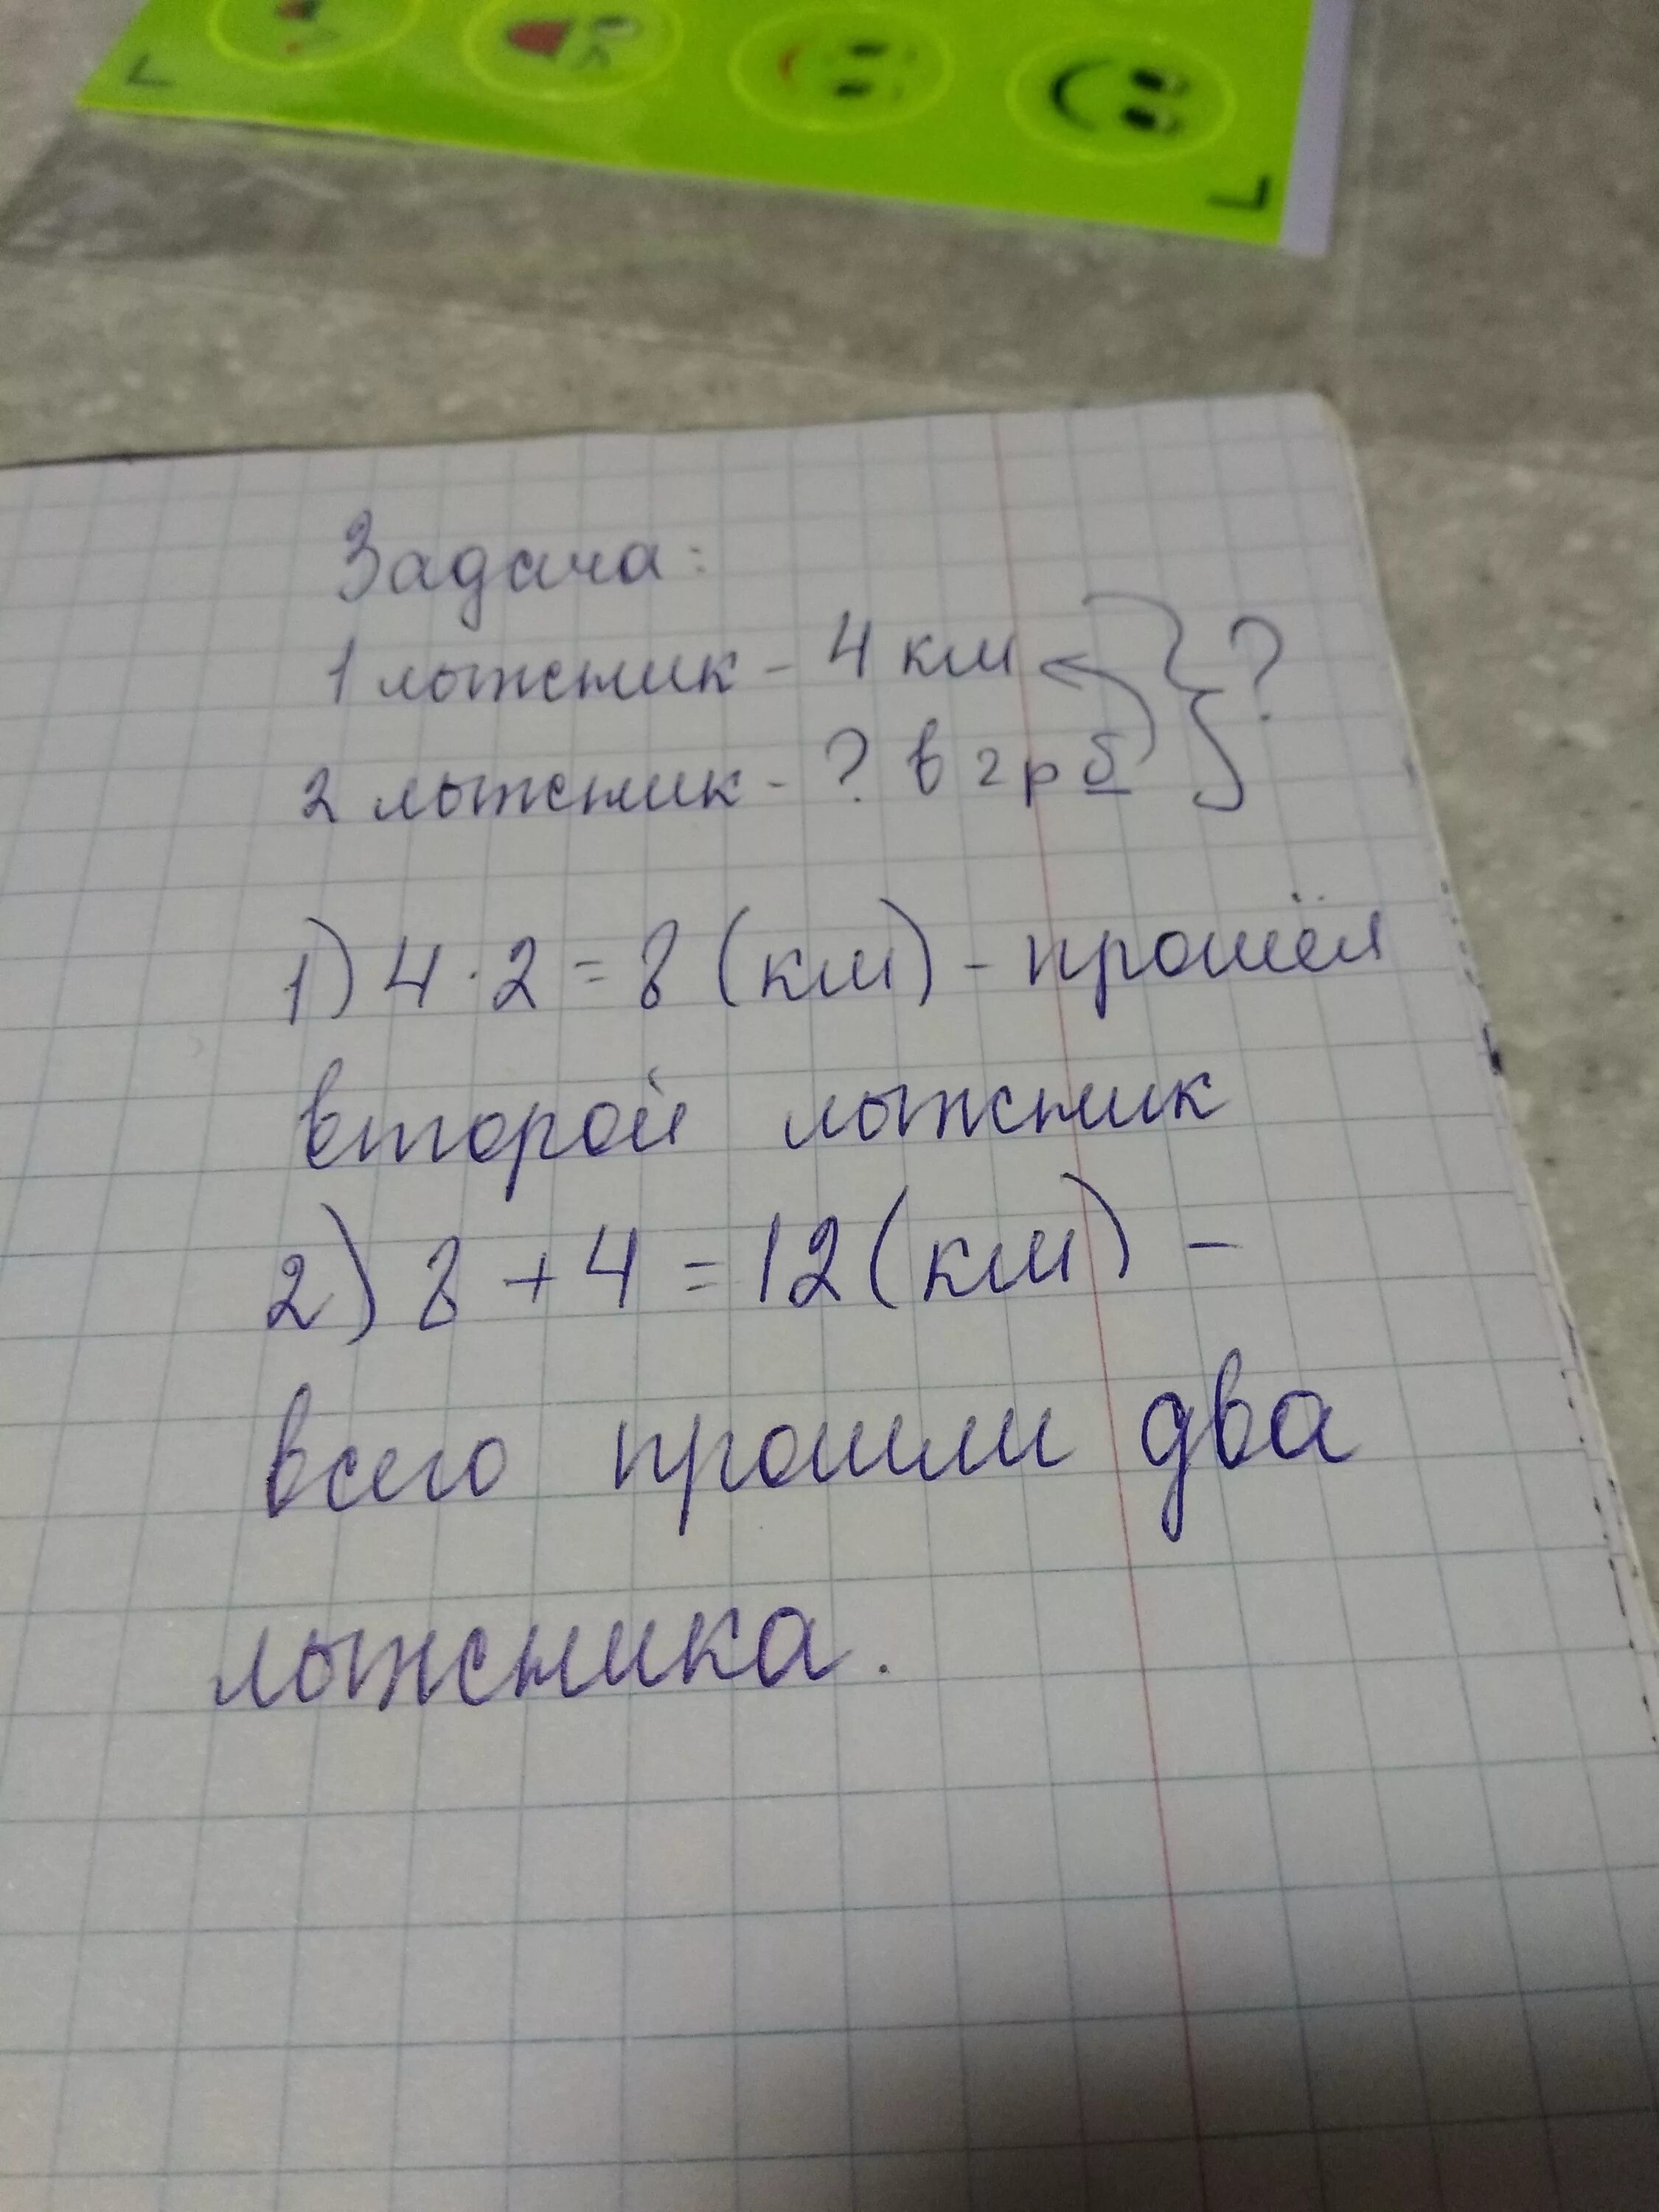 Задача:
1 лыжник - 4 км } ?
2 лыжник - ? в 2 р б
1) 4 · 2 = 8 (км) - прошёл
второй лыжник
2) 8 + 4 = 12 (км) -
всего прошли два
лыжника.